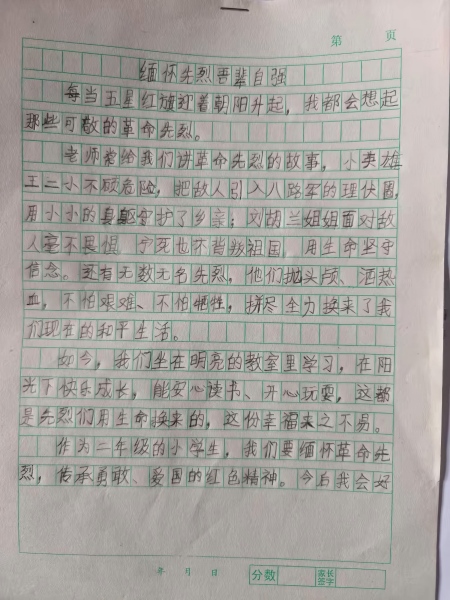 第 页
缅怀先烈吾辈自强
每当五星红旗迎着朝阳升起，我都会想起
那些可敬的革命先烈。
老师常给我们讲革命先烈的故事，小英雄
王二小不顾危险，把敌人引入八路军的埋伏圈，
用小小的身躯守护了乡亲；刘胡兰姐姐面对敌
人毫不畏惧，宁死也不背叛祖国，用生命坚守
信念。还有无数无名先烈，他们抛头颅、洒热
血，不怕艰难、不怕牺牲，拼尽全力换来了我
们现在的和平生活。
如今，我们坐在明亮的教室里学习，在阳
光下快乐成长，能安心读书、开心玩耍，这都
是先烈们用生命换来的，这份幸福来之不易。
作为二年级的小学生，我们要缅怀革命先
烈，传承勇敢、爱国的红色精神。今后我会好
年 月 日 分数 家长签字